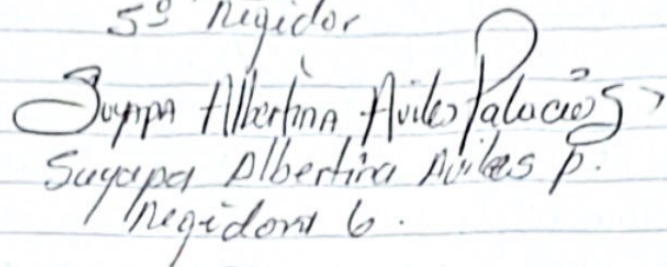 5º Regidor
Suyapa Albertina Aviles Palacios
Suyapa Albertina Aviles p.
Regidora 6.